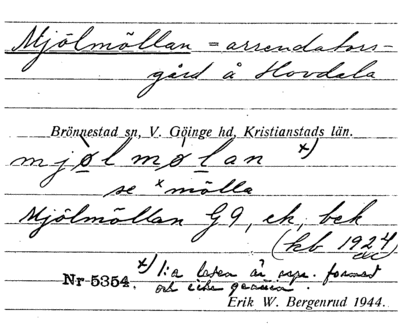 Mjölmöllan = arrendators-
gård å Hovdala
Brönnestad sn, V. Göinge hd, Kristianstads län.
mjølmølan x)
se x mölla
Mjölmöllan G9, ek, bek
(kb 1924
x) 1:a
Nr 5354. och icke
Erik W. Bergenrud 1944.